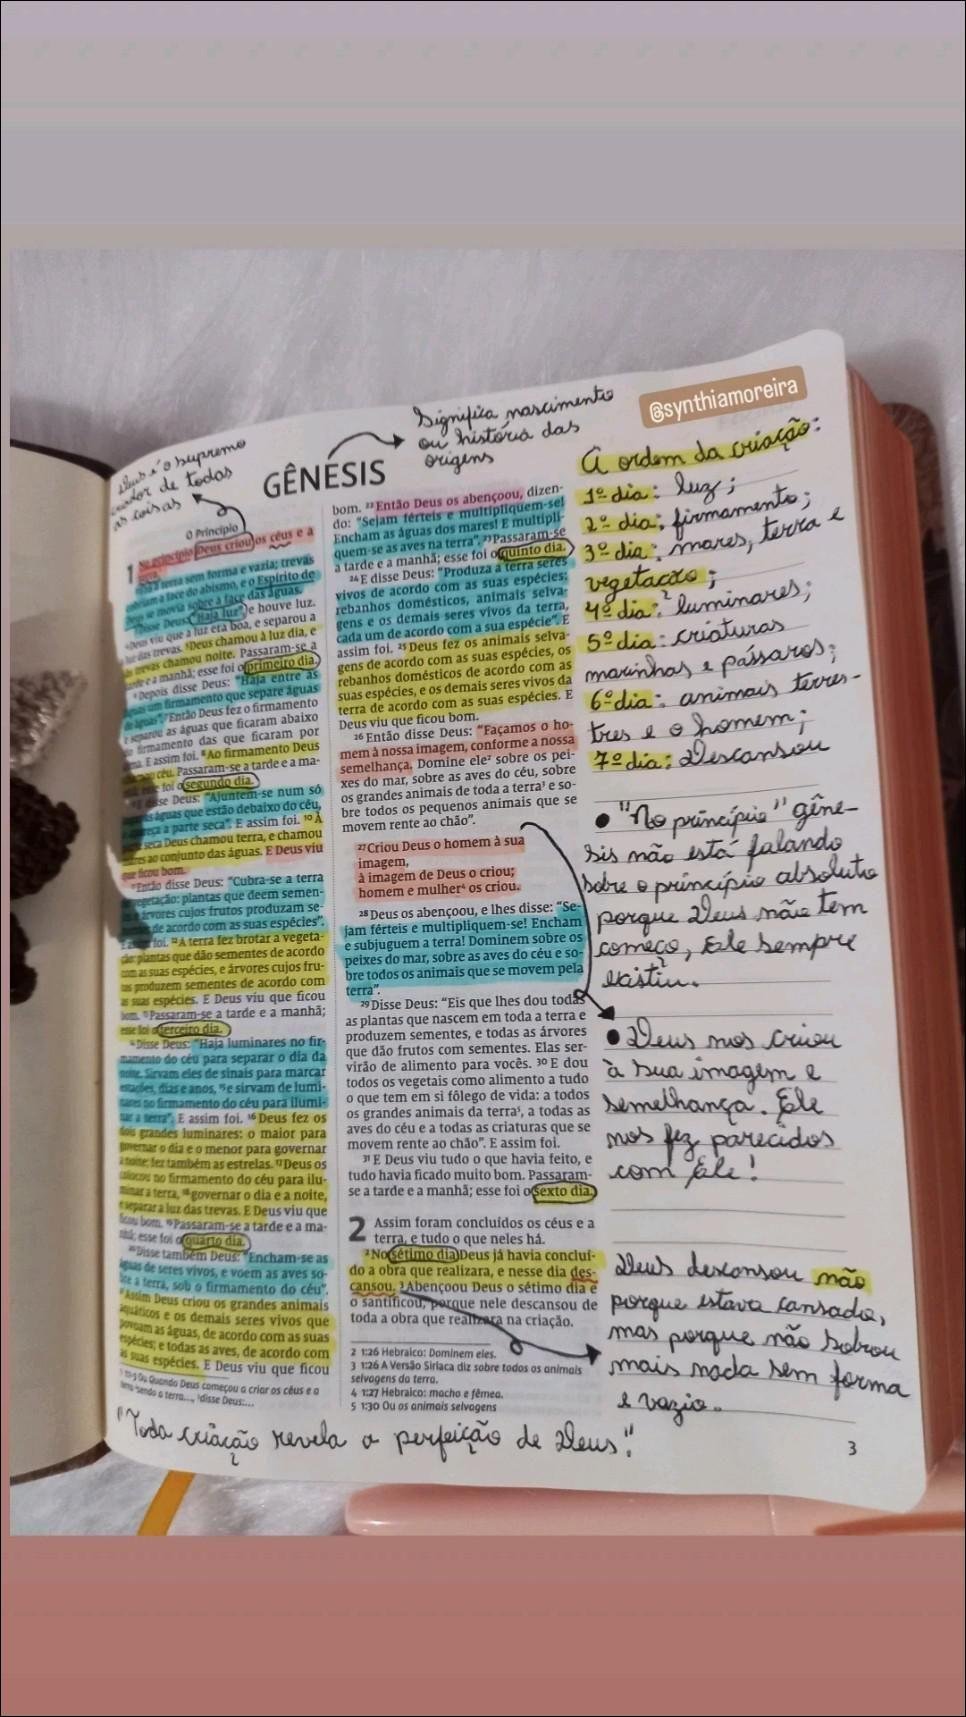 Significa nascimento
ou história das
origens
@synthiamoreira
Deus é o supremo
criador de todas
as coisas
GÊNESIS
O Princípio
1 No princípio Deus criou os céus e a
terra.
a terra sem forma e vazia; trevas
cobriam a face do abismo, e o Espírito de
Deus se movia sobre a face das águas.
Disse Deus: "Haja luz", e houve luz.
Deus viu que a luz era boa, e separou a
luz das trevas. ⁵Deus chamou à luz dia, e
às trevas chamou noite. Passaram-se a
tarde e a manhã; esse foi o primeiro dia.
⁶Depois disse Deus: "Haja entre as
águas um firmamento que separe águas
de águas". ⁷Então Deus fez o firmamento
e separou as águas que ficaram abaixo
do firmamento das que ficaram por
cima. E assim foi. ⁸Ao firmamento Deus
chamou céu. Passaram-se a tarde e a ma-
nhã; esse foi o segundo dia.
⁹E disse Deus: "Ajuntem-se num só
lugar as águas que estão debaixo do céu,
e apareça a parte seca". E assim foi. ¹⁰À
parte seca Deus chamou terra, e chamou
mares ao conjunto das águas. E Deus viu
que ficou bom.
¹¹Então disse Deus: "Cubra-se a terra
de vegetação: plantas que deem semen-
tes e árvores cujos frutos produzam se-
mentes de acordo com as suas espécies".
E assim foi. ¹²A terra fez brotar a vegeta-
ção: plantas que dão sementes de acordo
com as suas espécies, e árvores cujos fru-
tos produzem sementes de acordo com
as suas espécies. E Deus viu que ficou
bom. ¹³Passaram-se a tarde e a manhã;
esse foi o terceiro dia.
¹⁴Disse Deus: "Haja luminares no fir-
mamento do céu para separar o dia da
noite. Sirvam eles de sinais para marcar
estações, dias e anos, ¹⁵e sirvam de lumi-
nares no firmamento do céu para ilumi-
nar a terra". E assim foi. ¹⁶Deus fez os
dois grandes luminares: o maior para
governar o dia e o menor para governar
a noite; fez também as estrelas. ¹⁷Deus os
colocou no firmamento do céu para ilu-
minar a terra, ¹⁸governar o dia e a noite,
e separar a luz das trevas. E Deus viu que
ficou bom. ¹⁹Passaram-se a tarde e a ma-
nhã; esse foi o quarto dia.
²⁰Disse também Deus: "Encham-se as
águas de seres vivos, e voem as aves so-
bre a terra, sob o firmamento do céu".
²¹Assim Deus criou os grandes animais
aquáticos e os demais seres vivos que
povoam as águas, de acordo com as suas
espécies; e todas as aves, de acordo com
as suas espécies. E Deus viu que ficou
Ou Quando Deus começou a criar os céus e a
terra, ²sendo a terra..., ³disse Deus:...
bom. ²²Então Deus os abençoou, dizen-
do: "Sejam férteis e multipliquem-se!
Encham as águas dos mares! E multipli-
quem-se as aves na terra". ²³Passaram-se
a tarde e a manhã; esse foi o quinto dia.
²⁴E disse Deus: "Produza a terra seres
vivos de acordo com as suas espécies:
rebanhos domésticos, animais selva-
gens e os demais seres vivos da terra,
cada um de acordo com a sua espécie". E
assim foi. ²⁵Deus fez os animais selva-
gens de acordo com as suas espécies, os
rebanhos domésticos de acordo com as
suas espécies, e os demais seres vivos da
terra de acordo com as suas espécies. E
Deus viu que ficou bom.
²⁶Então disse Deus: "Façamos o ho-
mem à nossa imagem, conforme a nossa
semelhança. Domine ele² sobre os pei-
xes do mar, sobre as aves do céu, sobre
os grandes animais de toda a terra³ e so-
bre todos os pequenos animais que se
movem rente ao chão".
²⁷Criou Deus o homem à sua
imagem,
à imagem de Deus o criou;
homem e mulher⁴ os criou.
²⁸Deus os abençoou, e lhes disse: "Se-
jam férteis e multipliquem-se! Encham
e subjuguem a terra! Dominem sobre os
peixes do mar, sobre as aves do céu e so-
bre todos os animais que se movem pela
terra".
²⁹Disse Deus: "Eis que lhes dou todas
as plantas que nascem em toda a terra e
produzem sementes, e todas as árvores
que dão frutos com sementes. Elas ser-
virão de alimento para vocês. ³⁰E dou
todos os vegetais como alimento a tudo
o que tem em si fôlego de vida: a todos
os grandes animais da terra⁵, a todas as
aves do céu e a todas as criaturas que se
movem rente ao chão". E assim foi.
³¹E Deus viu tudo o que havia feito, e
tudo havia ficado muito bom. Passaram-
se a tarde e a manhã; esse foi o sexto dia.
2 Assim foram concluídos os céus e a
terra, e tudo o que neles há.
²No sétimo dia Deus já havia concluí-
do a obra que realizara, e nesse dia des-
cansou. ³Abençoou Deus o sétimo dia e
o santificou, porque nele descansou de
toda a obra que realizara na criação.
2 1:26 Hebraico: Dominem eles.
3 1:26 A Versão Siríaca diz sobre todos os animais
selvagens da terra.
4 1:27 Hebraico: macho e fêmea.
5 1:30 Ou os animais selvagens
A ordem da criação:
1º dia: luz;
2º dia: firmamento;
3º dia: mares, terra e
vegetação;
4º dia: luminares;
5º dia: criaturas
marinhas e pássaros;
6º dia: animais terres-
tres e o homem;
7º dia: Descansou
• "No princípio" gêne-
sis não está falando
sobre o princípio absoluto
porque Deus não tem
começo, Ele sempre
existiu.
• Deus nos criou
à sua imagem e
semelhança. Ele
nos fez parecidos
com Ele!
Deus descansou não
porque estava cansado,
mas porque não sobrou
mais nada sem forma
e vazio.
"Toda criação revela a perfeição de Deus".
3